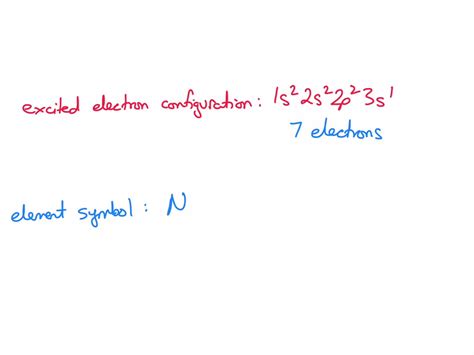 excited electron configuration: 1s²2s²2p²3s¹
7 electrons
element symbol: N